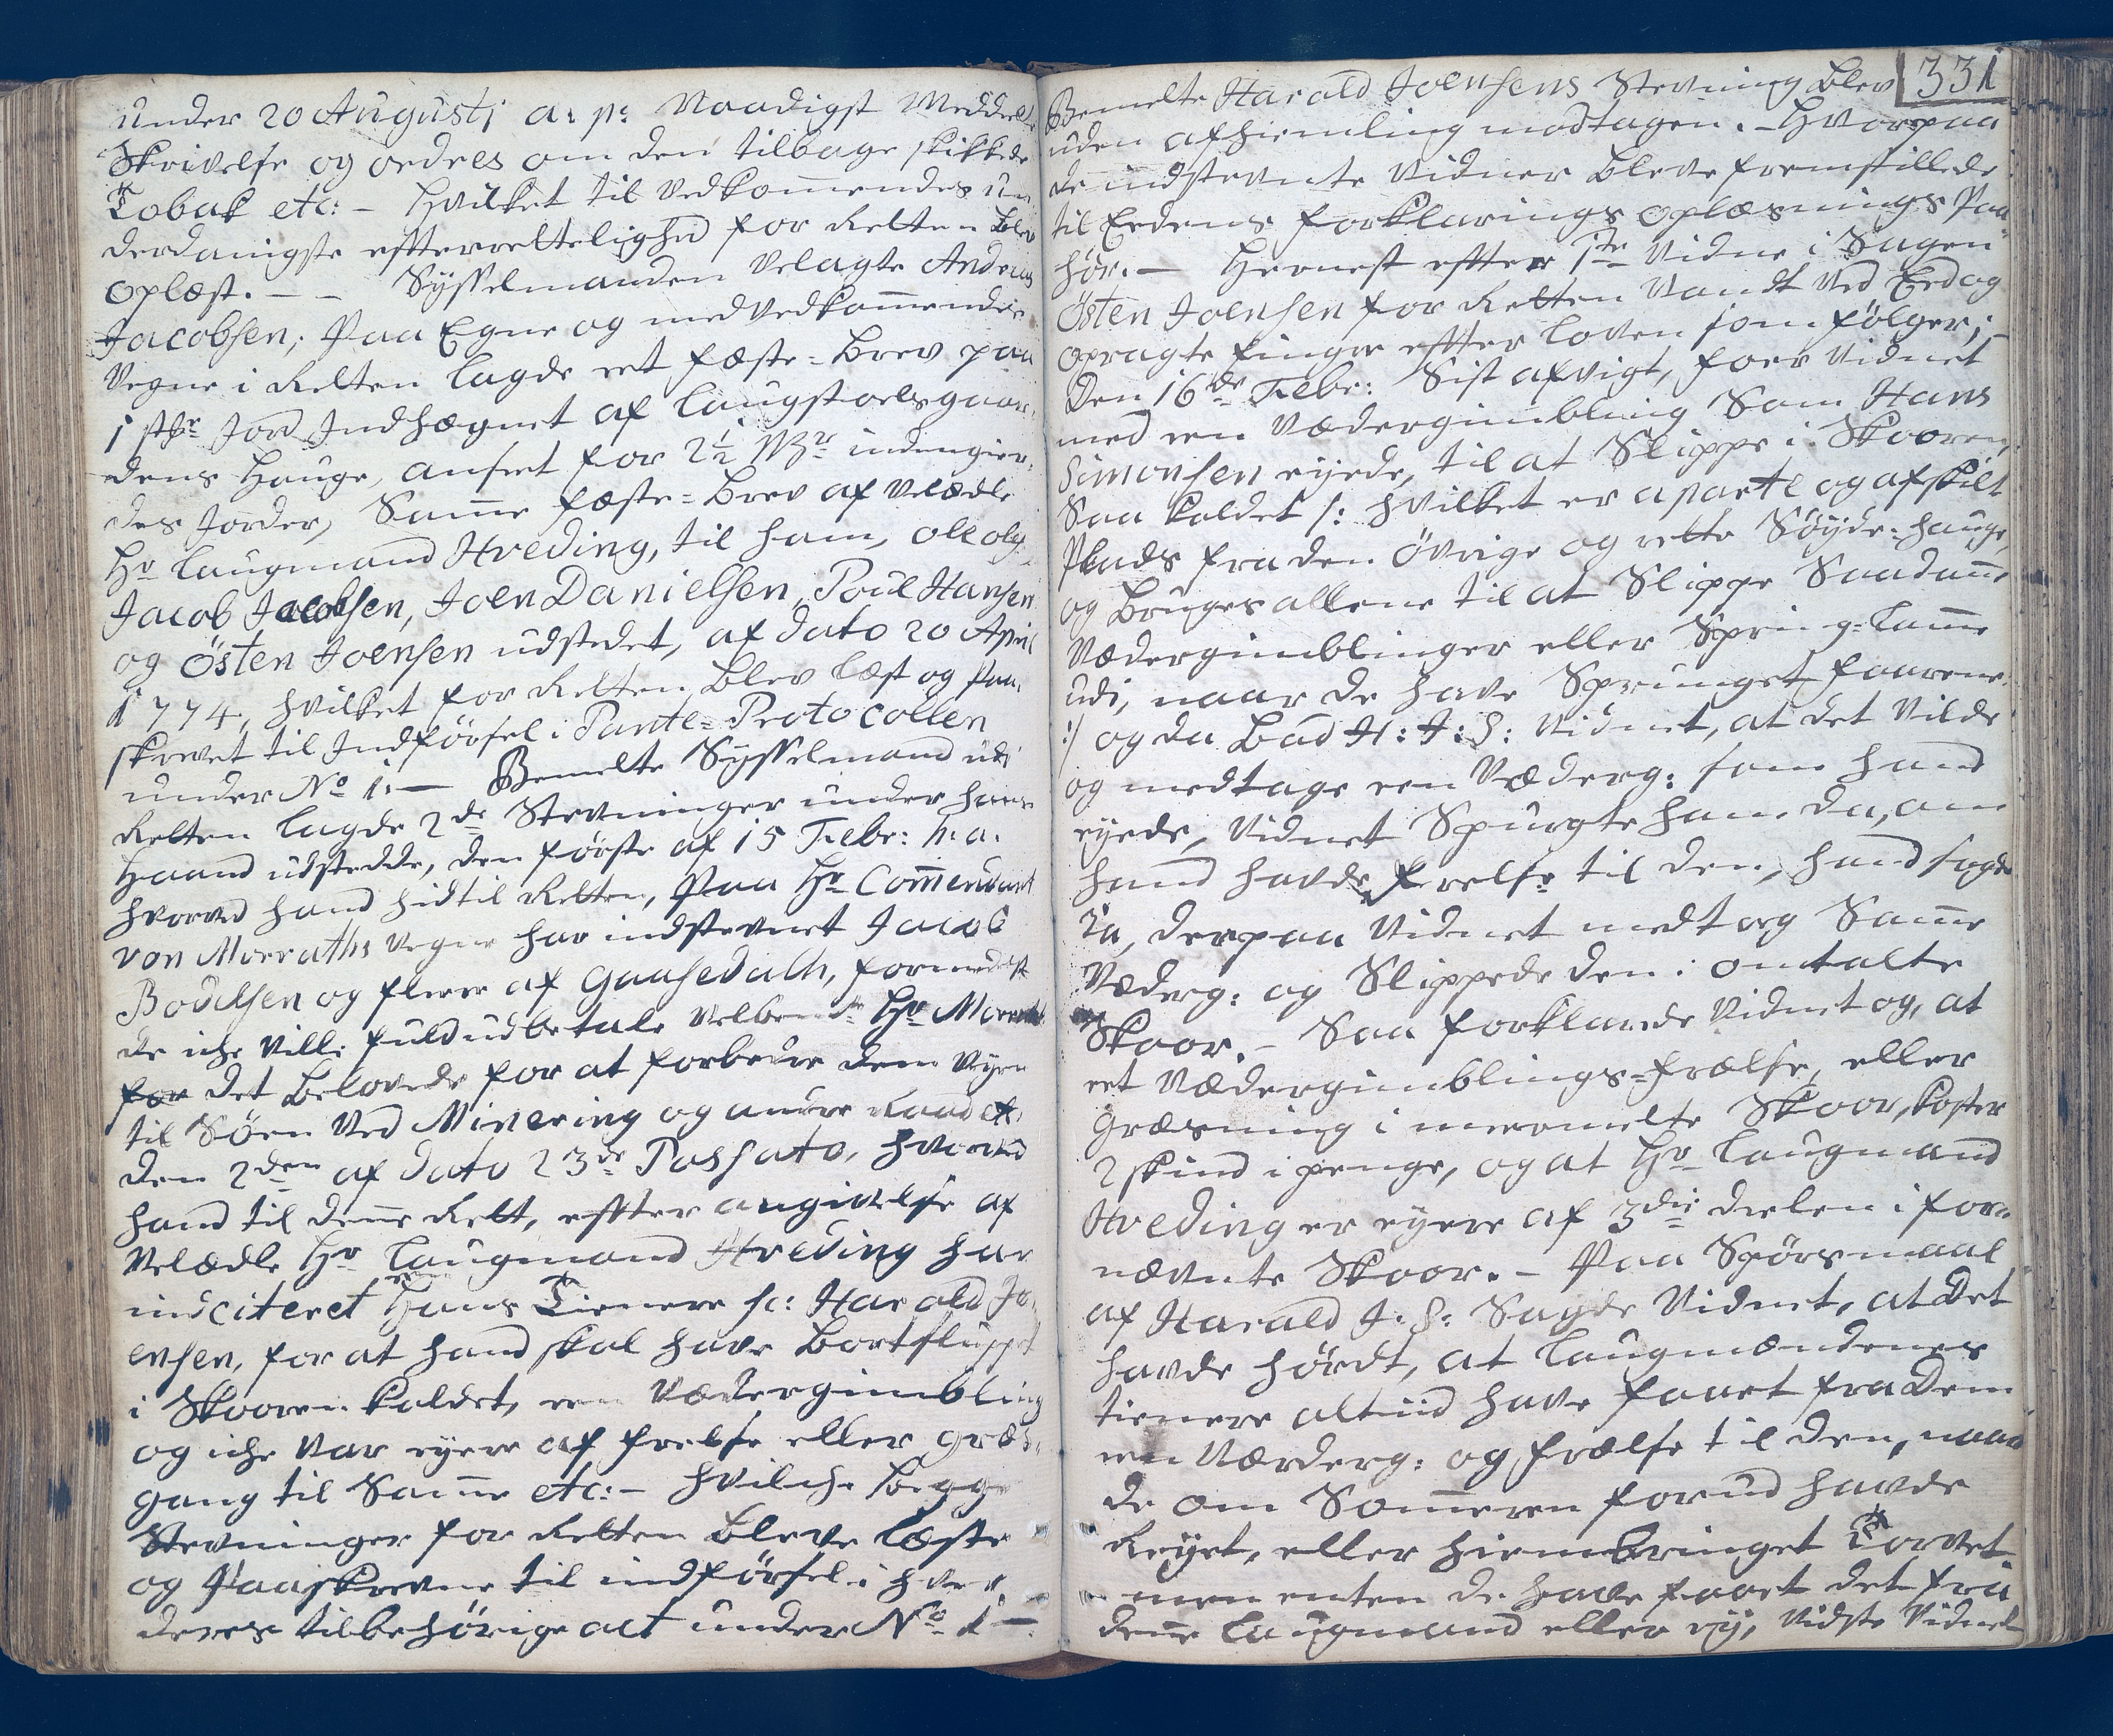 under 20 Augustj a: p: Naadigst Meddeelte
Skrivelse og ordres om den tilbage skikkede
Tobak etc: – Hvilket til vedkommendes un-
derdanigste efterrettelighed for Retten blev
oplæst. – – Sysselmanden Velagte Andreas
Jacobsen, paa Egne og medvedkommendes
Vegne i Retten lagde eet fæste-brev paa
1 Jord Indhægnet af Laugstoelsgaar-
dens Hauge, anseet for 2½ indengier-
des Jorder, Samme fæste-brev af Velædle
Hr Laugmand Hveding, til ham, 
Jacob Jacobsen, Joen Danielsen, Poul Hansen
og Östen Joensen udstedet, af dato 20 April
1774, hvilket for Retten blev læst og paa-
skrevet til Indförsel i Pante-Protocollen
under No 1. – Bemelte Sysselmand udi
Retten lagde 2de Stevninger under hans
Haand udstedde, den förste af 15 Febr: h: a.
hvorved hand hid til Retten, paa Hr Commendant
von Morraths Vegne har indstevnet Jacob
Bodelsen og flere af Gaasedalh, formedelst
de iche ville fuld udbetale Velbemte Hr Morrath
for det belovede for at forbedre dem veyen
til Söen ved Minering og andre Raad etc.
den 2den af dato 23de Passato, hvorved
hand til denne Rett, efter angivelse af
Velædle Hr Laugmand Hveding har
indciteret Hans Tienere sc: Harald Jo-
ensen, for at hand skal have bortsluppet
i Skooren kaldet, een Vædergimbling
og iche var eyere af frelse eller græs-
gang til Samme etc: – hvilche begge
Stevninger for Retten bleve læste
og Paaskrevne til indförsel i hver
deres tilbehörige alt under No 1 –
331
Bemelte Harald Joensens Stevning blev
uden afhiemling modtagen. – Hvorpaa
de indstevnte Vidner bleve fremstillede
til Eedens forklarings oplæsnings Paa-
hör. – Hernest efter 1te Vidne i Sagen
Östen Joensen for Retten Vandt ved Eed og
opragte finger efter Loven som fölger;
Den 16de Febr: Sist afvigt, foer Vidnet
med een Vædergimbling Som Hans
Simonsen eyede, til at Slippe i Skooren
Saa kaldet /: hvilket er aparte og afskilt
Plads fra den övrige og rette Söyde-hauge,
og bruges allene til at Slippe Saadanne
Vædergimblinger eller Spring-Lamme
udi, naar de have Sprunget faarene
:/ og da bad H: J: S: Vidnet, at det vilde
og medtage een Væderg: som hand
eyede, Vidnet Spurgte ham da, om
hand havde frelse til den, hand sagde
Ja, derpaa Vidnet medtog Samme
Væderg: og Slippede den i omtalte
Skoor. – Saa forklarede Vidnet og, at
eet Vædergimblings-frælse, eller
Græsning i meermelte Skoor, koster
2 skind i penge, og at Hr Laugmand
Hveding er eyere af 3die deelen i for-
nævnte Skoor. – Paa Spörsmaal
af Harald J: S: Sagde Vidnet, at det
havde hördt, at Laugmændenes
tienere altiid have faaet fra dem
een Værderg: og frælse til den, naar
de om Sommeren forud havde
Reyet, eller hiembringet Torvet
men enten de have faaet det fra
denne Laugmand eller ey, vidste Vidnet